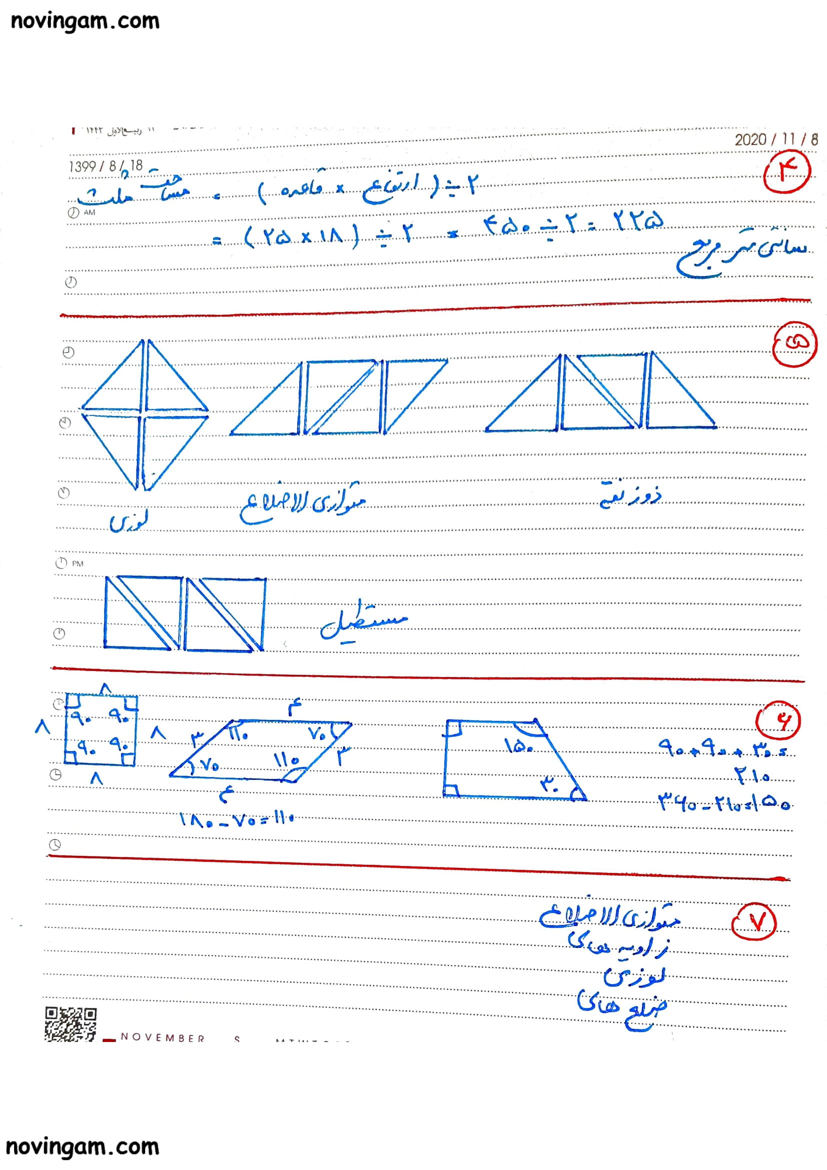 novingam.com
۱۴۴۲ ربیع‌الاول
2020 / 11 / 8
1399 / 8 / 18
۴
مساحت مثلث = (قاعده × ارتفاع) ÷ ۲
AM
= (۲۵ × ۱۸) ÷ ۲ = ۴۵۰ ÷ ۲ = ۲۲۵
سانتی متر مربع
۵
لوزی
متوازی الاضلاع
ذوزنقه
PM
مستطیل
۶
۸
۸ ۸
۸
۹۰ ۹۰
۹۰ ۹۰
۴
۳ ۱۱۰ ۷۰
۷۰ ۱۱۰ ۳
۴
۱۸۰ - ۷۰ = ۱۱۰
۱۵۰
۳۰
۹۰ + ۹۰ + ۳۰ =
۲۱۰
۳۶۰ - ۲۱۰ = ۱۵۰
۷
متوازی الاضلاع
زاویه های
لوزی
ضلع های
NOVEMBER S M T W
novingam.com